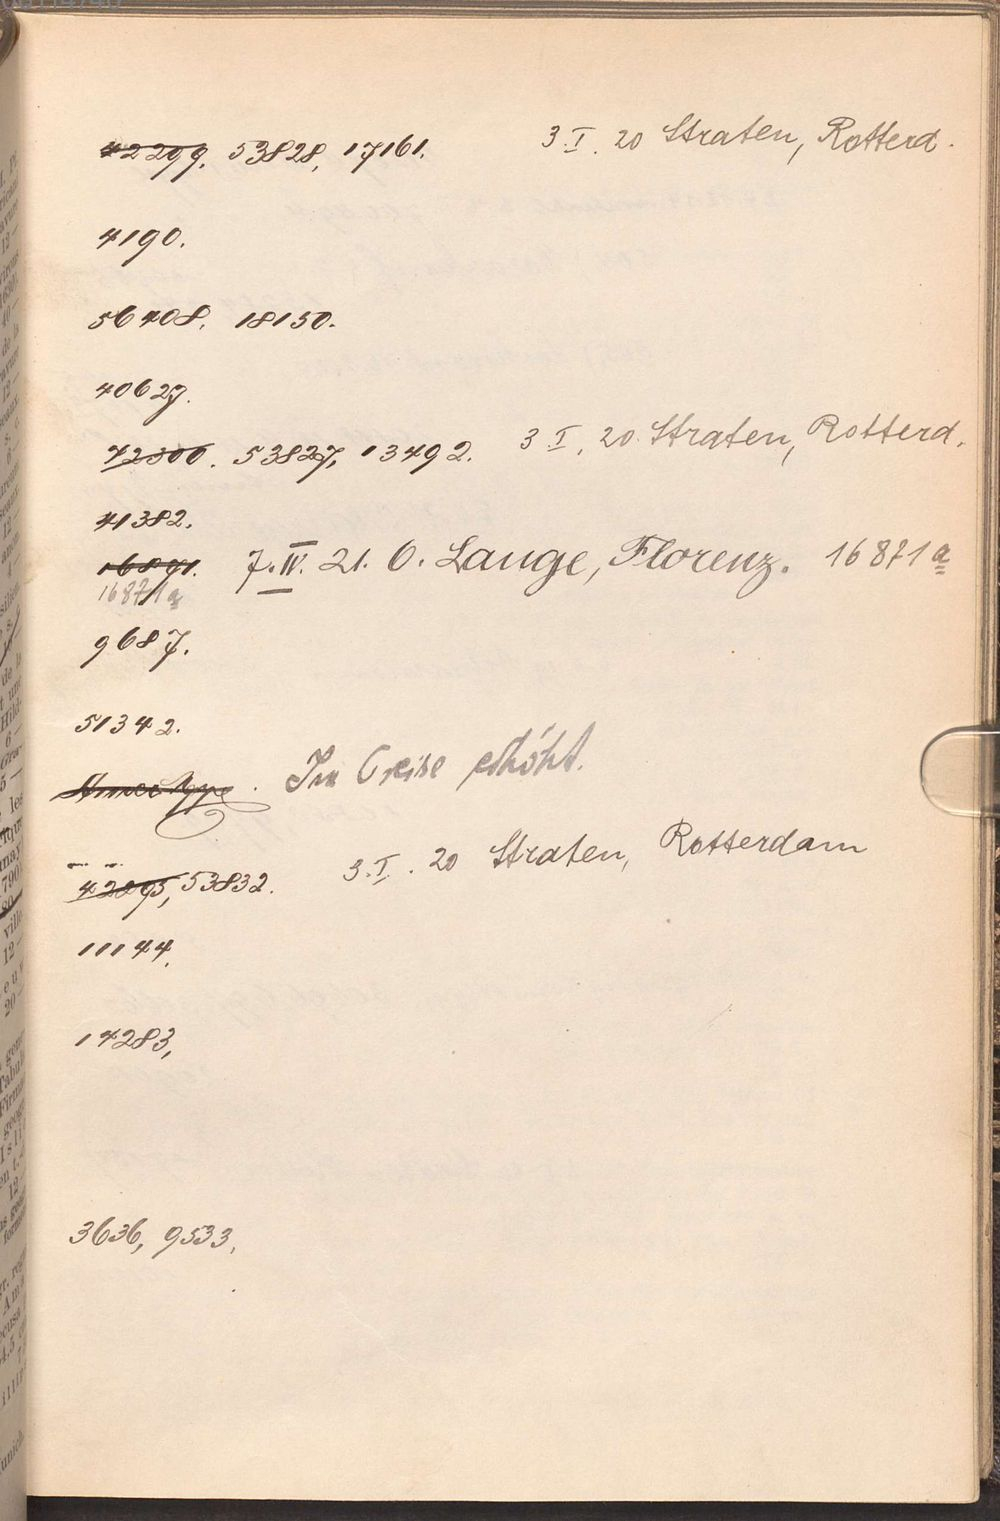 42299. 53828, 17161. 3.I.20 Straten, Rotterd.
4190.
56408. 18150.
40627.
42300. 53827, 13492. 3 I, 20 Straten, Rotterd.
41382.
16891. 7.IV. 21. O. Lange, Florenz. 16871a
16871a
9687.
51342.
Im Preise erhöht.
53832. 3.I.20 Straten, Rotterdam
11144.
14283,
3636, 9533,